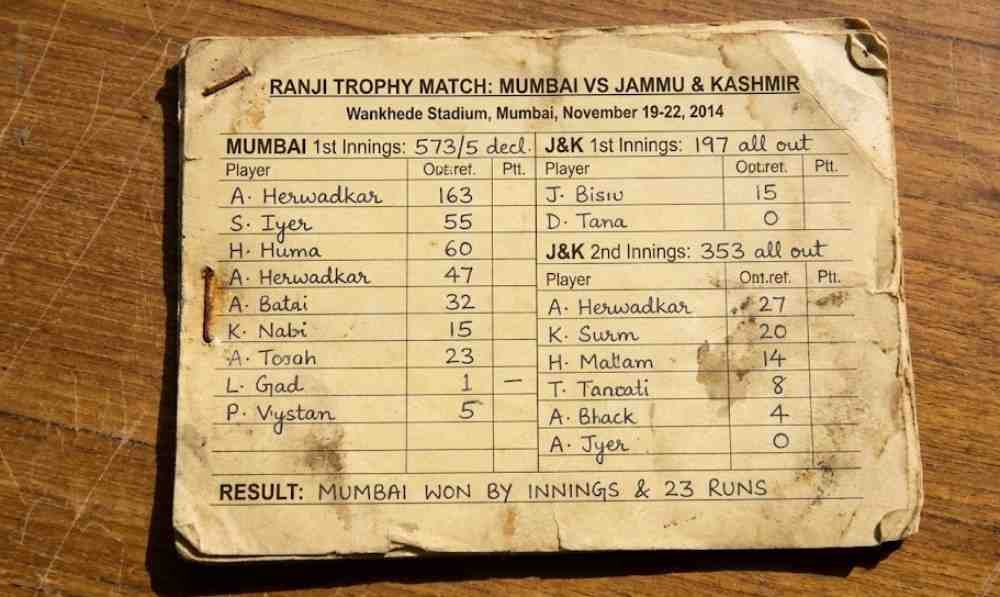 RANJI TROPHY MATCH: MUMBAI VS JAMMU & KASHMIR
Wankhede Stadium, Mumbai, November 19-22, 2014
MUMBAI 1st Innings: 573/5 decl.
Player Out.ref. Ptt.
A. Herwadkar 163
S. Iyer 55
H. Huma 60
A. Herwadkar 47
A. Batai 32
K. Nabi 15
A. Tosah 23
L. Gad 1 –
P. Vystan 5
J&K 1st Innings: 197 all out
Player Out.ref. Ptt.
J. Bisiu 15
D. Tana 0
J&K 2nd Innings: 353 all out
Player Ont.ref. Ptt.
A. Herwadkar 27
K. Surm 20
H. Mallam 14
T. Tancati 8
A. Bhack 4
A. Jyer 0
RESULT: MUMBAI WON BY INNINGS & 23 RUNS